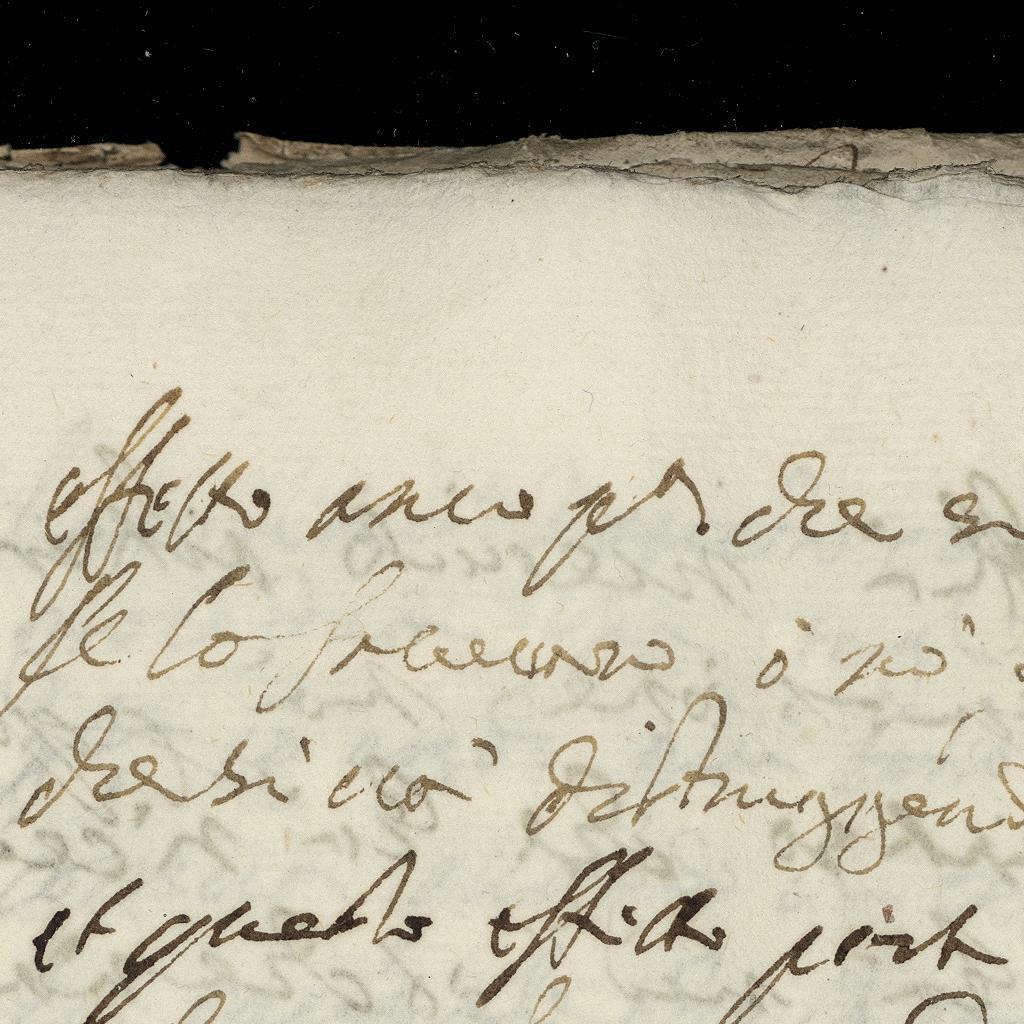 effetto anco p che
se lo faceuano ò nò
che si uà distruggend
et questo effetto